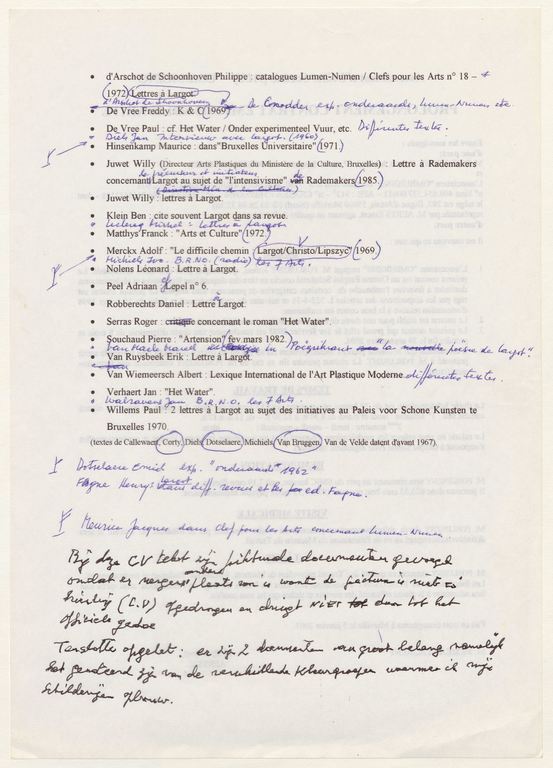 • d'Arschot de Schoonhoven Philippe : catalogues Lumen-Numen / Clefs pour les Arts n° 18 –
1972) Lettres à Largot.
d'Arschot de Schoonhoven
• De Vree Freddy : K & C (1969) De Conodder exp. onderaards, Lumen-Numen etc.
• De Vree Paul : cf. Het Water / Onder experimenteel Vuur, etc. Différents textes.
Diels Jan Interview avec Largot. (1960).
• Hinsenkamp Maurice : dans "Bruxelles Universitaire" (1971)
• Juwet Willy (Directeur Arts Plastiques du Ministère de la Culture, Bruxelles) : Lettre à Rademakers
le précurseur et initiateur
concernant Largot au sujet de "l'intersivisme" van de Rademakers (1985)
• Juwet Willy : lettres à Largot.
• Klein Ben : cite souvent Largot dans sa revue.
Leclercq Michel : lettres à Largot
• Matthys Franck : "Arts et Culture" (1972)
• Merckx Adolf : "Le difficile chemin (Largot/Christo/Lipszyc" (1969)
Michiels Ivo. B.R.N.O. (radio) les 7 Arts.
• Nolens Léonard : Lettre à Largot.
• Peel Adriaan : Lepel n° 6.
• Robberechts Daniel : Lettre à Largot.
• Serras Roger : critique concernant le roman "Het Water".
• Souchaud Pierre : "Artension" fev.mars 1982)
Van Maele Marcel in "la poésie de Largot".
• Van Ruysbeek Erik : Lettre à Largot.
• Van Wiemeersch Albert : Lexique International de l'Art Plastique Moderne. différentes textes.
• Verhaert Jan : "Het Water".
Walravens Jan B.R.N.O. les 7 Arts.
• Willems Paul : 2 lettres à Largot au sujet des initiatives au Paleis voor Schone Kunsten te
Bruxelles 1970.
(textes de Callewaert, Corty, Diels, Dotselaere, Michiels, Van Bruggen, Van de Velde datent d'avant 1967)
Dotselaere Emiel exp. "onderaards 1962"
Fagne Henry: diff. revues et les par ed. Fagne.
Meurice Jacques dans Clef pour les Arts concernant Lumen-Numen
Bij deze CV tekst zijn documenten gevoegd
omdat er nergens anders plaats voor is want de factuur is niet zo
(C.V) opgedragen en dringt NIET door tot het
officiele gedoe
Tenslotte opgelet : er zijn 2 documenten van groot belang namelijk
het zijn van de verschillende kleurgroepen waarmee ik mijn
schilderijen opbouw.